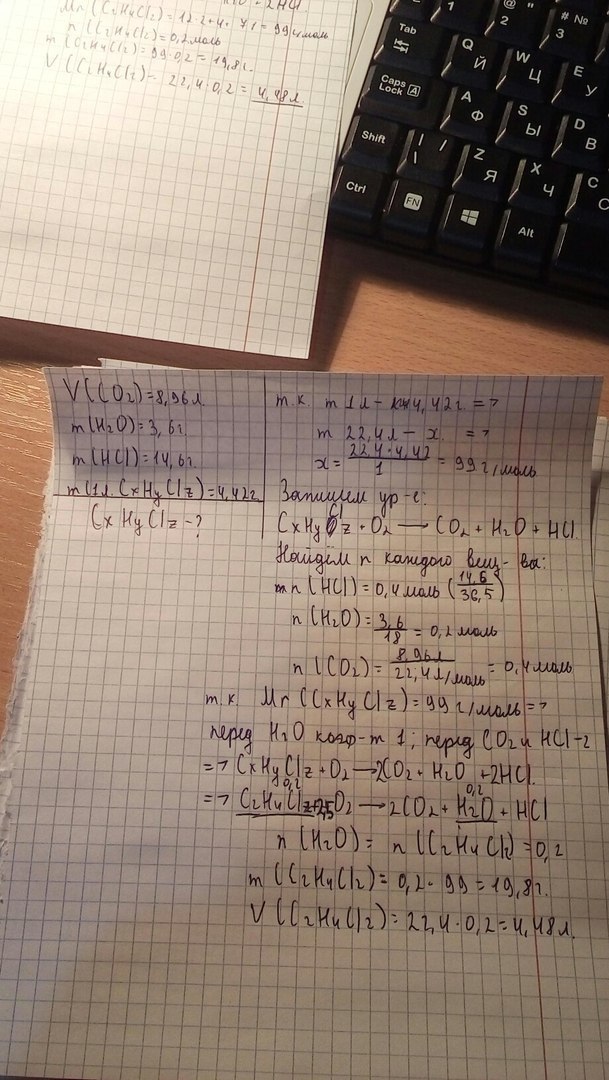 Mr(C₂H₄Cl₂)=12·2+4+71=99 г/моль
n(C₂H₄Cl₂)=0,2моль
m(C₂H₄Cl₂)=99·0,2=19,8г.
V(C₂H₄Cl₂)- 22,4·0,2=4,48л
Tab
Caps Lock A
Shift
Ctrl
FN
Alt
! 1
@ " 2
# № 3
Q Й
W Ц
E У
A Ф
S Ы
D В
/ \ |
Z Я
X Ч
C С
V(CO₂)=8,96л.
m(H₂O)=3,6г.
m(HCl)=14,6г.
m(1л. CxHyClz)=4,42г
CxHyClz-?
т.к. m 1л - 4,42г. =>
m 22,4л - x. =>
x= 22,4·4,42 / 1 = 99г/моль
Запишем ур-е:
CxHyClz + O₂ → CO₂ + H₂O + HCl
Найдём n каждого вещ-ва:
n(HCl)=0,4моль (14,6/36,5)
n(H₂O)= 3,6/18 = 0,2моль
n(CO₂)= 8,96л / 22,4л/моль = 0,4моль
т.к. Mr(CxHyClz)=99г/моль =>
перед H₂O коэф-т 1; перед CO₂ и HCl-2
=> CxHyClz+O₂ → 2CO₂ + H₂O + 2HCl.
0,2 0,2
=> C₂H₄Cl₂+2,5O₂ → 2CO₂ + H₂O + HCl
n(H₂O)= n(C₂H₄Cl₂)=0,2
m(C₂H₄Cl₂)=0,2·99=19,8г.
V(C₂H₄Cl₂)=22,4·0,2=4,48л.